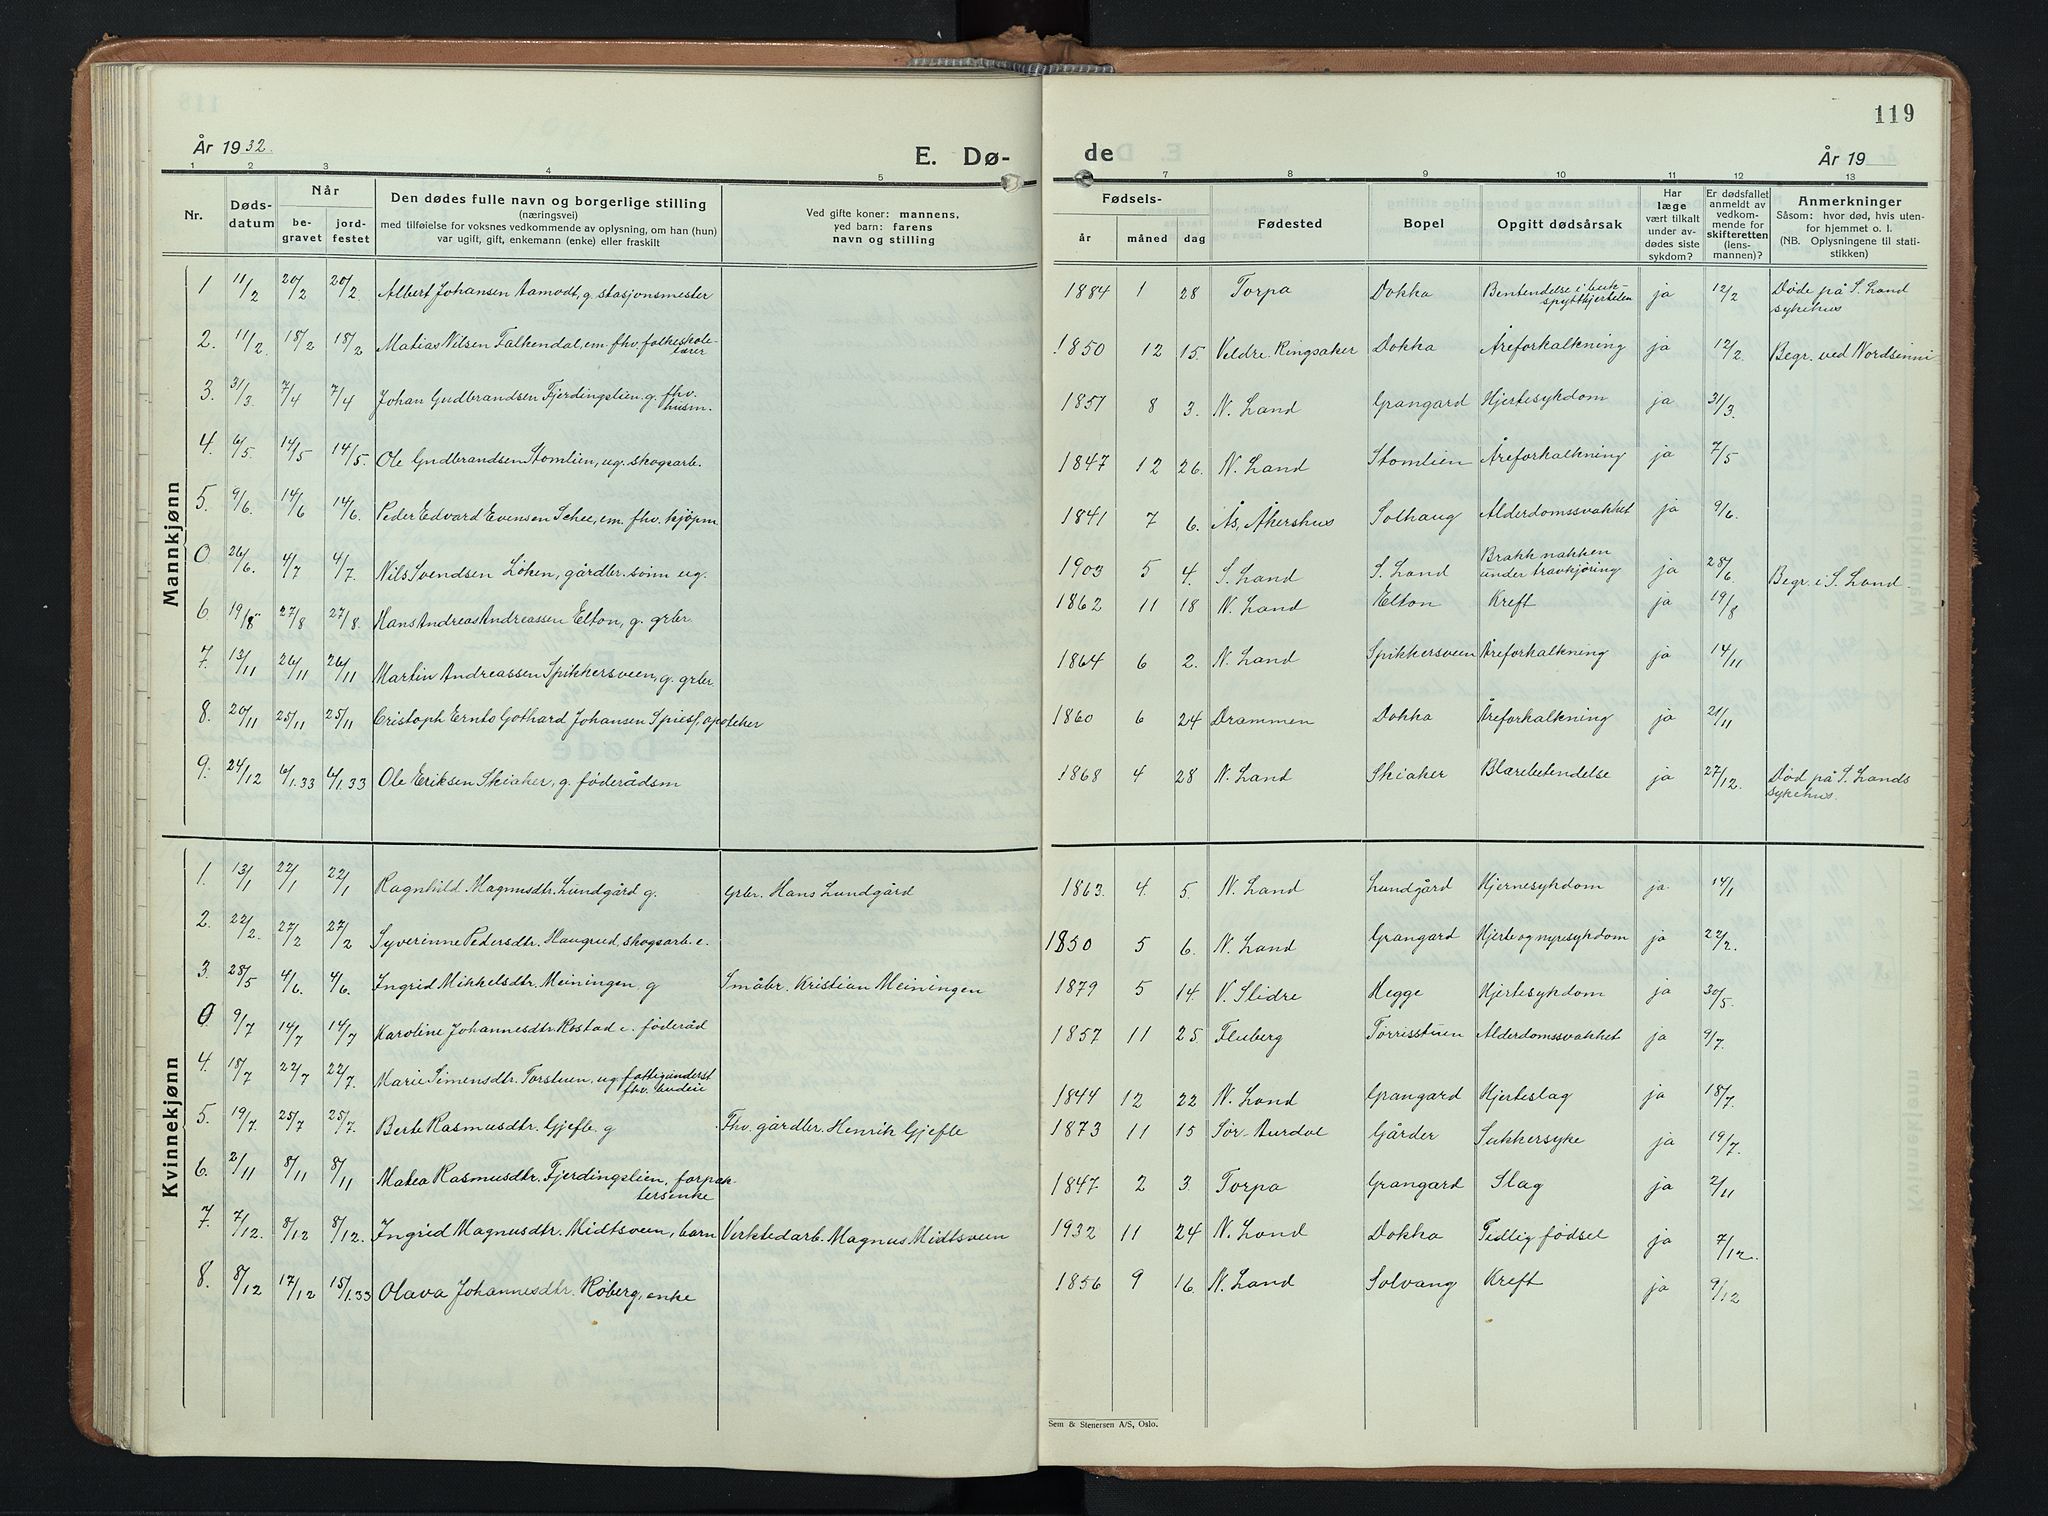 119
År 1932.
E. Dø-
de
År 19
1 2 3 4 5
7 8 9 10 11 12 13
Nr.
Døds-
datum
Når
be-
gravet
jord-
festet
Den dødes fulle navn og borgerlige stilling
(næringsvei)
med tilføielse for voksnes vedkommende av oplysning, om han (hun)
var ugift, gift, enkemann (enke) eller fraskilt
Ved gifte koner: mannens,
ved barn: farens
navn og stilling
Fødsels-
år måned dag
Fødested
Bopel
Opgitt dødsårsak
Har
læge
vært tilkalt
under av-
dødes siste
sykdom?
Er dødsfallet
anmeldt av
vedkom-
mende for
skifteretten
(lens-
mannen)?
Anmerkninger
Såsom: hvor død, hvis uten-
for hjemmet o. l.
(NB. Oplysningene til stati-
stikken)
Mannkjønn
1 11/2 20/2 20/2 Albert Johansen Aamodt, g. stasjonsmester 1884 1 28 Torpa Dokka Bentendelse i buk-
spyttkjertelen ja 12/2 Døde på S. Land
sykehus
2. 11/2. 18/2 18/2 Matias Nilsen Falkendal, em. fhv. folkeskole-
lærer 1850 12 15. Veldre. Ringsaker Dokka Åreforkalkning ja 12/2. Begr. ved Nordsinni
3. 31/3. 7/4 7/4 Johan Gudbrandsen Fjerdingslien g. fhv.
husm. 1851 8 3. N. Land Grangard Hjertesykdom ja 31/3.
4. 6/5. 14/5 14/5. Ole Gudbrandsen Stomlien, ug. skogsarb. 1847 12 26. N. Land Stomlien Åreforkalkning ja 7/5
5. 9/6. 14/6 14/6. Peder Edvard Evensen Schee, em. fhv. kjøpm 1841 7 6. Ås, Åkershus Solhaug Alderdomssvakhet ja 9/6.
0 26/6. 4/7 4/7. Nils Svendsen Löken, gårdbr. sönn ug. 1903 5 4. S. Land S. Land Brakk nakken
under travkjøring ja 28/6. Begr. i S. Land.
6 19/8 27/8 27/8. Hans Andreas Andreassen Elton, g. grbr. 1862 11 18 N. Land Elton Kreft ja 19/8
7. 13/11 26/11 26/11 Martin Andreassen Spikkersveen, g. grbr. 1864 6 2. N. Land Spikkersveen Åreforkalkning ja 14/11
8. 20/11 25/11 25/11 Cristoph Ernto Gothard Johansen Spiess, apoteker 1860 6 24 Drammen Dokka Åreforkalkning ja 21/11
9. 24/12 6/1.33 6/1.33 Ole Eriksen Skiaker, g. föderådsm 1868 4 28 N. Land Skiaker Blærebetendelse ja 27/12. Død på S. Lands
sykehus.
Kvinnekjønn
1. 13/1 22/1 22/1 Ragnhild Magnusdtr. Lundgård g. Grbr. Hans Lundgård 1863. 4. 5. N. Land Lundgård Hjernesykdom ja. 14/1
2. 22/2. 27/2 27/2 Syverinne Pedersdtr. Haugrud, skogsarb. e. 1850 5 6. N. Land Grangard Hjerte og nyresykdom ja 22/2.
3. 28/5 4/6. 4/6. Ingrid Mikkelsdtr. Meiningen, g Småbr. Kristian Meiningen 1879 5 14. V. Slidre Hegge Hjertesykdom ja 30/5.
0 9/7 14/7 14/7 Karoline Johannesdtr. Rostad e. föderåd 1857 11 25. Fluberg Tørrisstuen Alderdomssvakhet ja 9/7.
4. 18/7 22/7 22/7. Marie Simensdtr. Torstuen, ug fattigunderst
fhv. budeie 1844 12 22 N. Land Grangard Hjerteslag ja 18/7.
5. 19/7. 25/7 25/7. Berte Rasmusdtr. Gjefle. g Fhv. gårdbr. Henrik Gjefle 1873 11 15 Sør-Aurdal Gårder Sukkersyke ja 19/7.
6. 2/11 8/11 8/11 Matea Rasmusdtr. Fjerdingslien, forpak-
tersenke 1847 2 3. Torpa Grangard Slag ja 2/11
7. 7/12. 8/12 8/12. Ingrid Magnusdtr. Midtsveen, barn Verktedarb. Magnus Midtsveen 1932 11 24 N. Land Dokka Tidlig fødsel ja 7/12.
8. 8/12 17/12 15/1.33 Olava Johannesdtr. Røberg, enke 1856 9 16. N. Land Solvang Kreft ja 9/12
Sem & Stenersen A/S, Oslo.